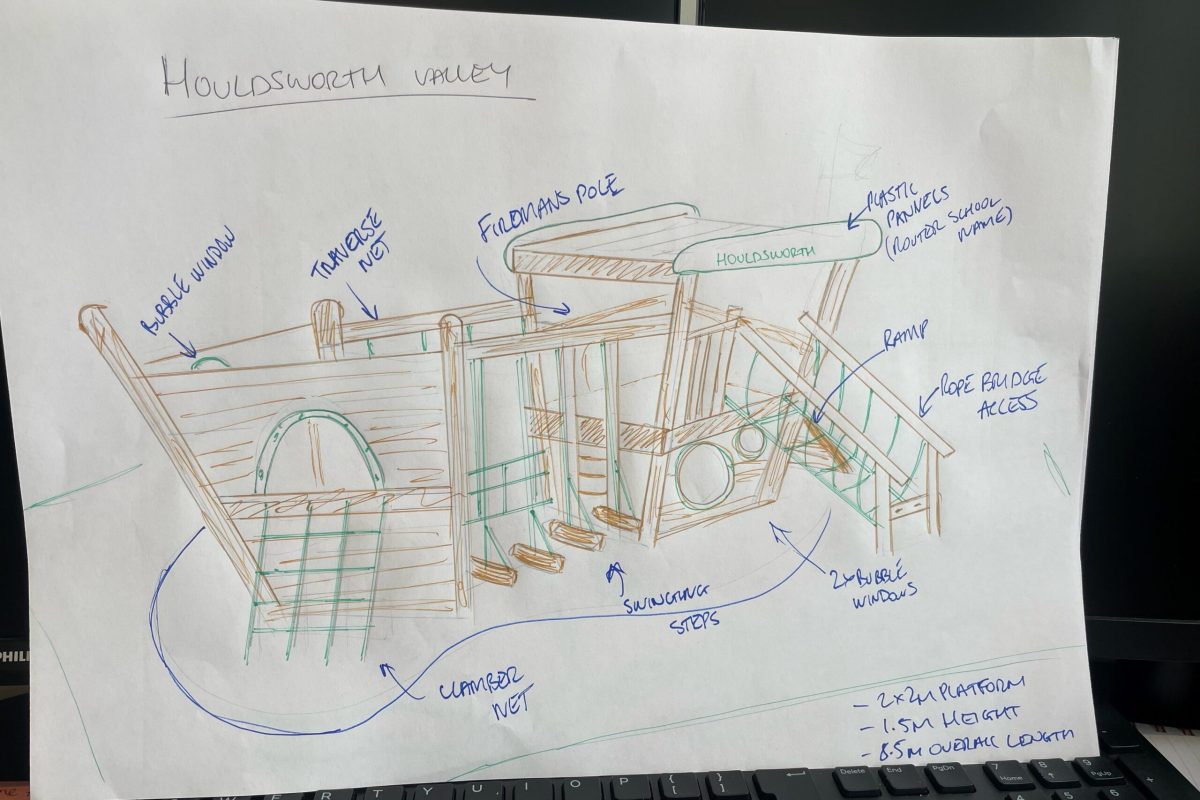 HOULDSWORTH VALLEY
BUBBLE WINDOW
TRAVERSE
NET
FIREMANS POLE
PLASTIC
PANNELS
(ROUTER SCHOOL
NAME)
HOULDSWORTH
RAMP
ROPE BRIDGE
ACCESS
2X BUBBLE
WINDOWS
SWINGING
STEPS
CLAMBER
NET
- 2X2M PLATFORM
- 1.5M HEIGHT
- 8.5M OVERALL LENGTH
PHILI
W E R T Y U I O P { [ } ]
Delete End PgDn 7 Home 8 9 PgUp
4 5 6